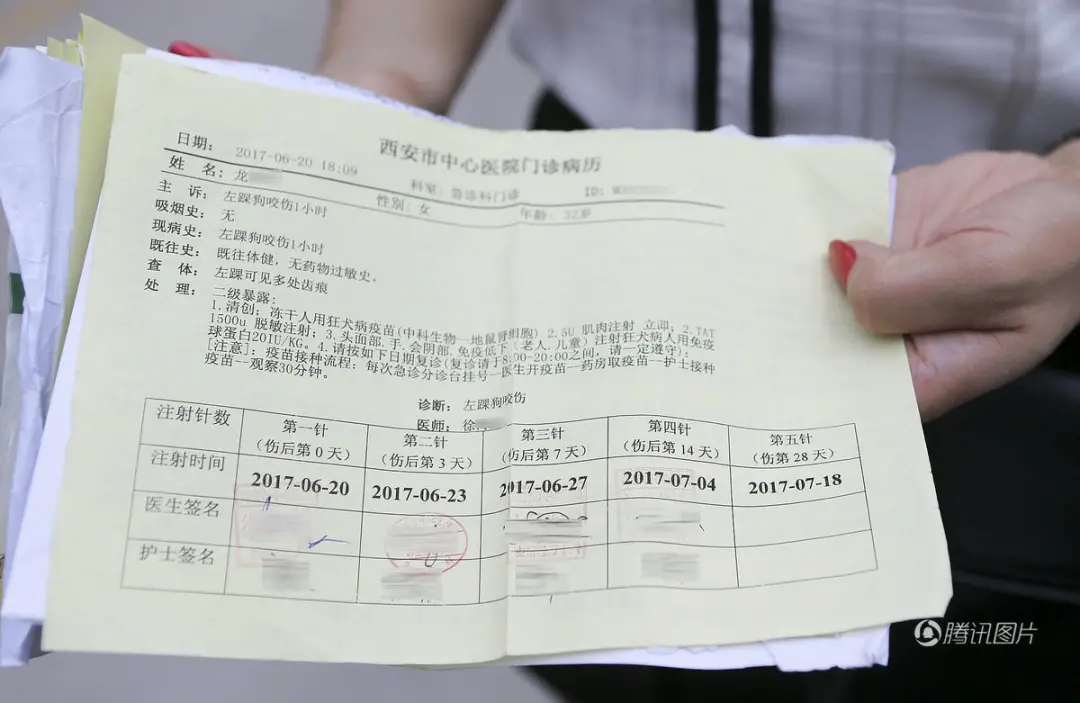 西安市中心医院门诊病历
日期: 2017-06-20 18:09
姓 名: 龙 科室: 急诊科门诊 ID:
主 诉: 左踝狗咬伤1小时 性别: 女 年龄: 32岁
吸烟史: 无
现病史: 左踝狗咬伤1小时
既往史: 既往体健, 无药物过敏史。
查 体: 左踝可见多处齿痕
处 理: 二级暴露:
1.清创; 冻干人用狂犬病疫苗(中科生物—地鼠肾细胞) 2.5U 肌肉注射 立即; 2.TAT
1500u 脱敏注射; 3.头面部.手.会阴部.免疫低下(老人.儿童)注射狂犬病人用免疫
球蛋白20IU/KG。4.请按如下日期复诊(复诊请于8:00-20:00之间, 请一定遵守):
[注意]: 疫苗接种流程: 每次急诊分诊台挂号—医生开疫苗—药房取疫苗—护士接种
疫苗—观察30分钟。
诊断: 左踝狗咬伤
医师: 徐
注射针数 第一针 第二针 第三针 第四针 第五针
(伤后第 0 天) (伤后第 3 天) (伤后第 7 天) (伤后第 14 天) (伤第 28 天)
注射时间 2017-06-20 2017-06-23 2017-06-27 2017-07-04 2017-07-18
医生签名
护士签名
腾讯图片